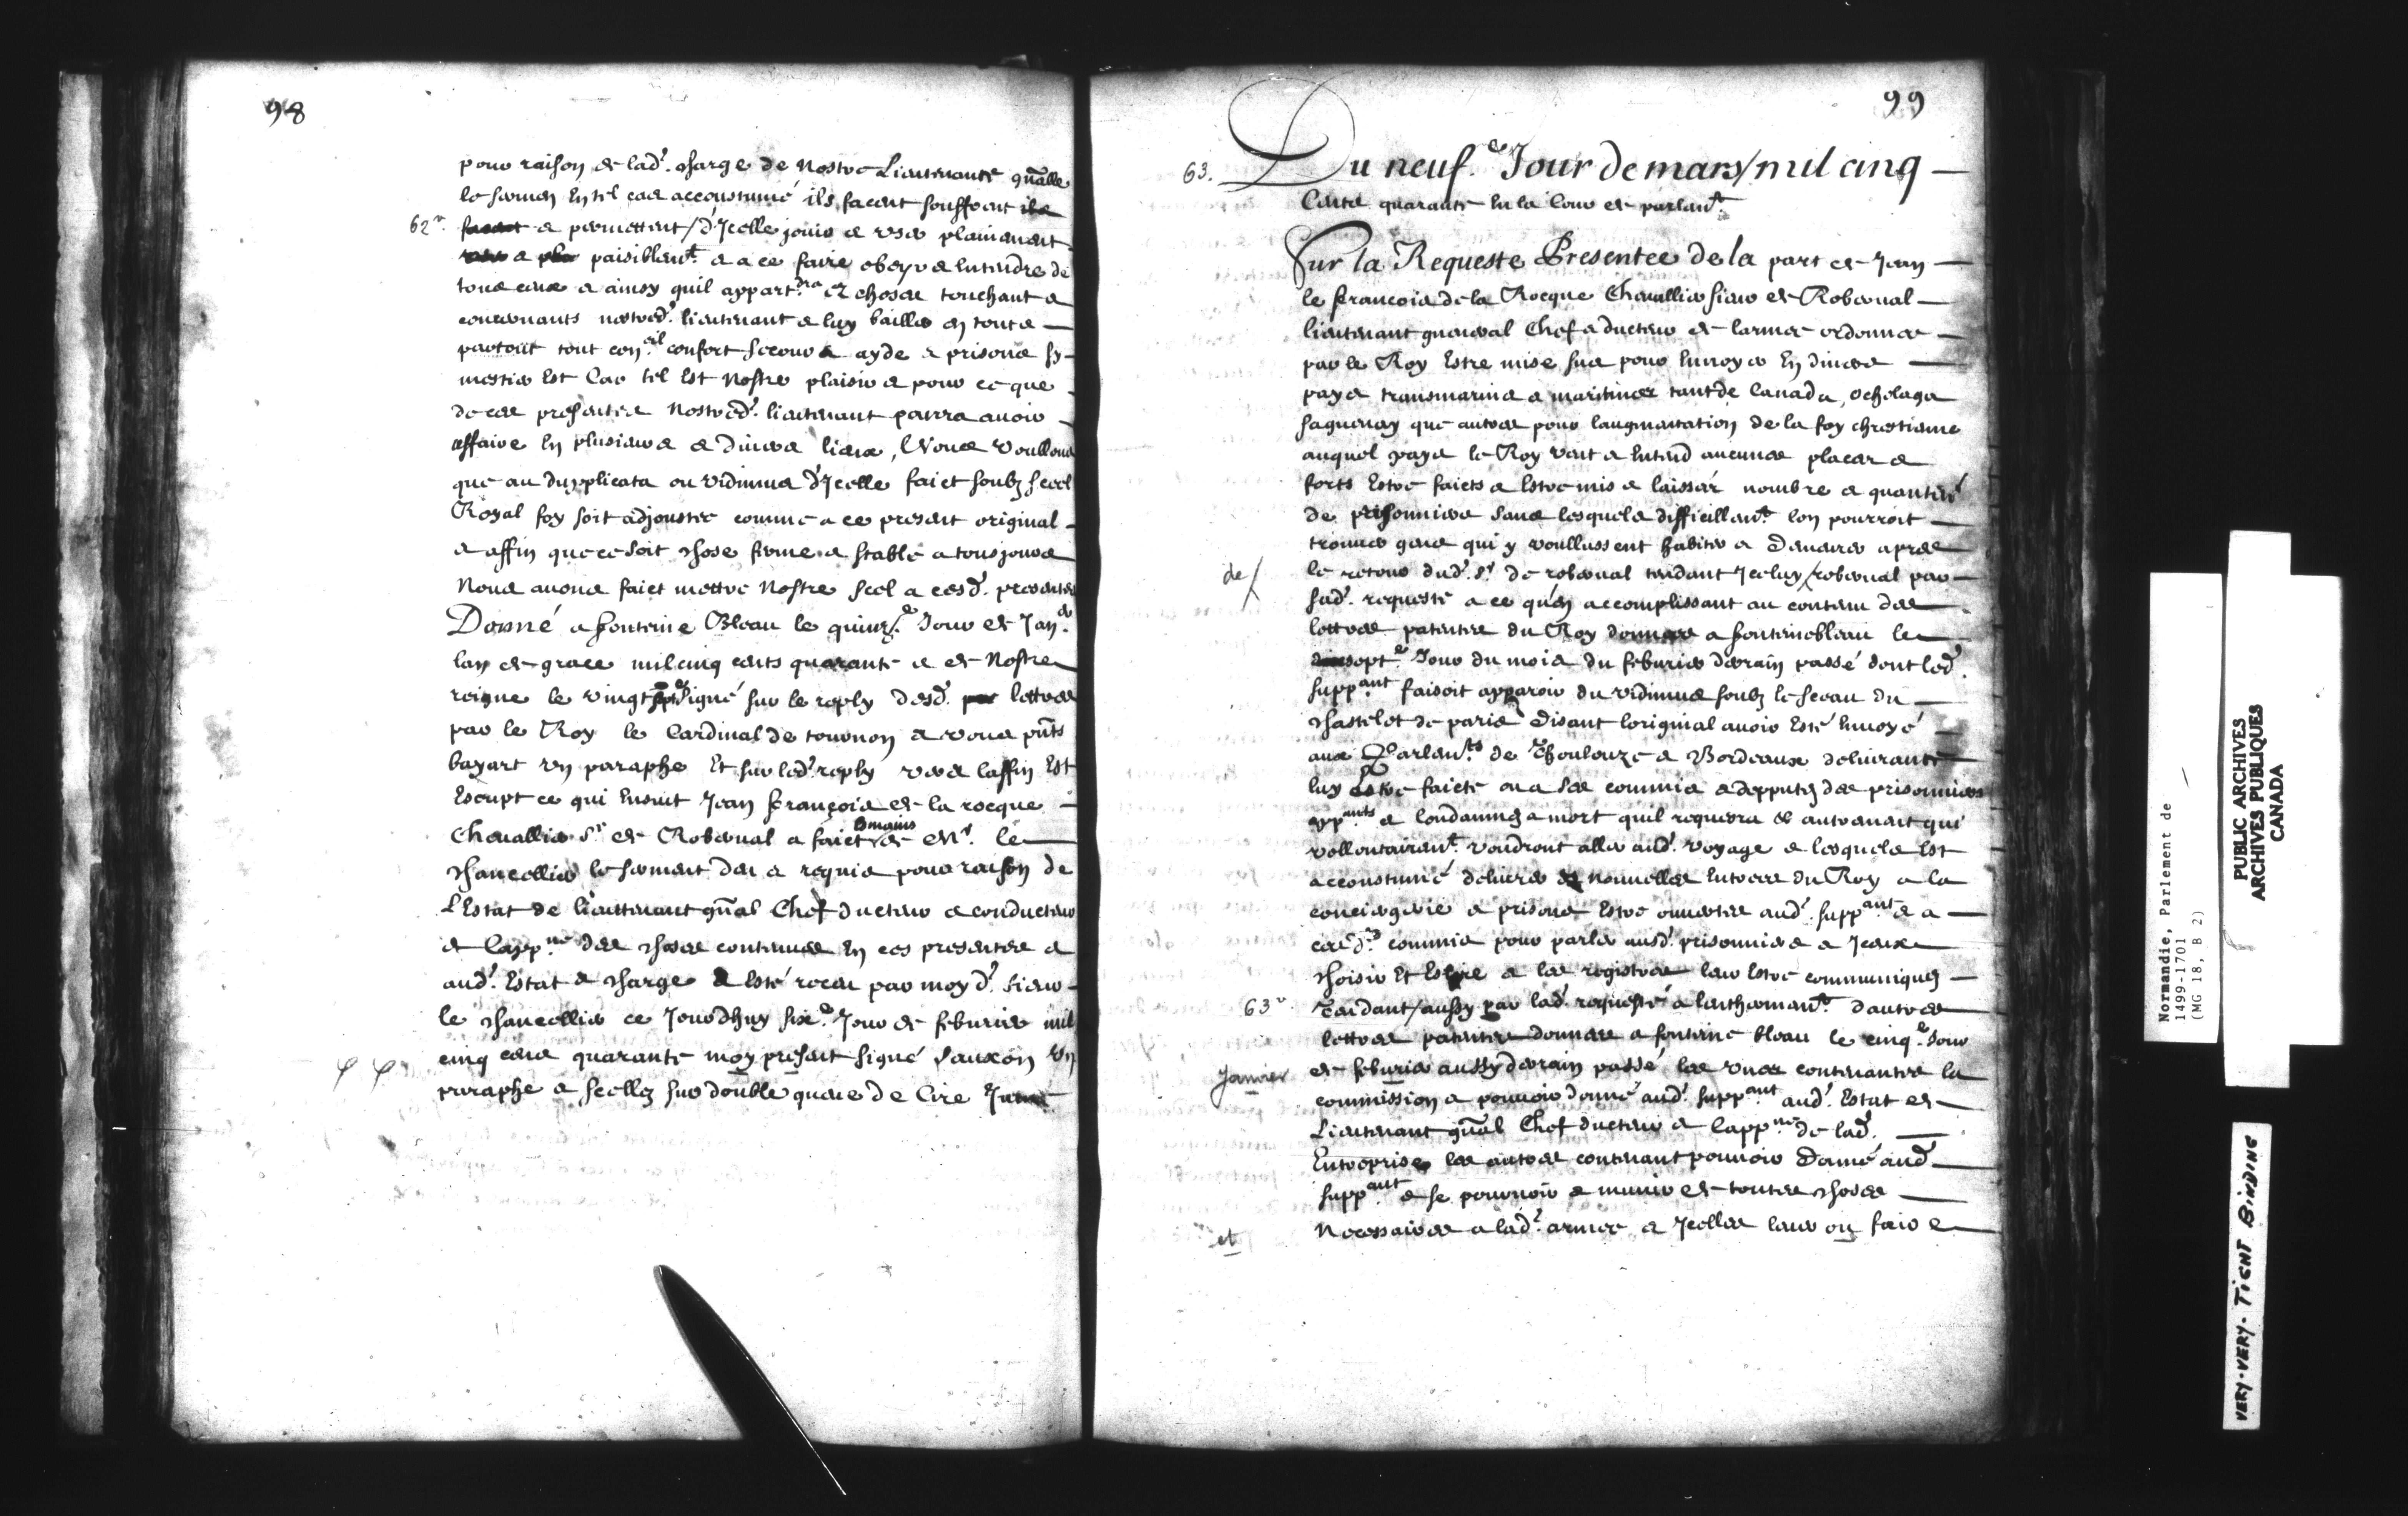 98
pour raison de lad. charge de nostre Lieutenante gñalle
le serment En tel cas accoustumé ils facent souffrent ils
62v. facent & permettent / d'Jcelle jouir & user plainement
& plai paisiblemt. & a ce faire obeyr & Entendre de
tous ceux & ainsy quil appartdra. Es choses touchant &
concernants nostred. lieutenant & luy bailler en tout &
partout tout conseil confort secours & ayde & prisons sy
mestier Est Car tel Est Nostre plaisir & pour ce que
de ces presentes Nostred. lieutenant pourra avoir
affaire En plusieurs & divers lieux, Nous voullons
que au dupplicata ou vidimus d'Jcelle faict soubz scel
Royal foy soit adjoustee comme a ce present original
& affin que ce soit chose ferme & stable a tousjours
Nous avons faict mettre Nostre scel a cesd. presentes
Donné a fonteine Bleau le quinze. Jour de Janer.
lan de grace mil cinq cents quarante & de Nostre
reigne le vingt sepe signé sur le reply desd. lettres
par le Roy le Cardinal de tournon & vous pñts
bayart un paraphe Et sur led. reply vers laffin Est
Escript ce qui Ensuit Jean françois de la rocque
Chevallier Sr. de Roberval a faict es mains de Mr. le
chancellier le serment deu & requis pour raison de
L'Estat de lieuttenant gñal Chef ducteur & conducteur
& Cappne. des choses contenues En ces presentes &
aud. Estat & charge a Esté receu par moyd. sieur
le chancellier ce Jourdhuy sixe. Jour de febvrier mil
cinq cens quarante moy présent signé Sauxon un
paraphe & scellez sur double queue de Cire Jaune
99
63. Du neufe. Jour de mars / mil cinq
Cents quarante En la Cour de parlemt.
Sur la Requeste Presentee de la part de Jean
le francois de la Rocque Chevallier sieur de Roberval
lieutenant general Chef & ducteur de larmee ordonnee
par le Roy Estre mise sus pour Envoyer En divers
pays transmarins & maritimes tant de Canada, ochelaga
saguenay que autres pour laugmentation de la foy chrestienne
auquel pays le Roy veut & Entend aucunes places &
forts Estre faicts & Estre mis & laisser nombre & quantité
de prisonniers sans lesquels difficillemt. lon pourroit
trouver gens qui y voullussent habiter & demeurer apres
de/ le retour dud. Sr. de roberval tendant Jceluy / roberval par
sad. requeste a ce qu'en accomplissant au contenu des
lettres patentes du Roy donnees a fontenebleau le
septe. Jour du mois du febvrier derrain passé dont led.
suppant. faisoit apparoir du vidimus soubz le sceau du
chastelet de paris disant loriginal avoir Esté Envoyé
aux Parlemts. de Thoulouze & Bordeaux delivrante
luy Estre faicte ou a ses commis & depputez des prisonniers
appants. & Condamnez a mort quil requerra & autrement qui
vollontairemt. voudront aller aud. voyage & lesquels Est
accoustumé delivrer de nouvelles Entrees du Roy & la
conciergerie & prisons Estre ouvertes aud. suppant. & a
cesd. commis pour parler ausd. prisonniers & Jceux
choisir Et Eslire & les registres leur Estre communiquez
63v. Tendant / aussy par lad. requeste a lentherinemt. dautres
lettres patentes donnees a fontene bleau le cinqe. Jour
Janvier de febvrier aussy derrain passé les unes contenantes la
commission & pouvoir donné aud. suppant. aud. Estat de
Lieutenant gñal Chef ducteur & Cappne. de lad.
Entreprise les autres contenant pouvoir donné aud.
suppant. de se pourvoir & munir de toutes choses
et Necessaires a lad. armee & Jcelles lever ou faire
Normandie, Parlement de
1499-1701
(MG 18, B 2)
PUBLIC ARCHIVES
ARCHIVES PUBLIQUES
CANADA
VERY-VERY-TIGHT BINDING